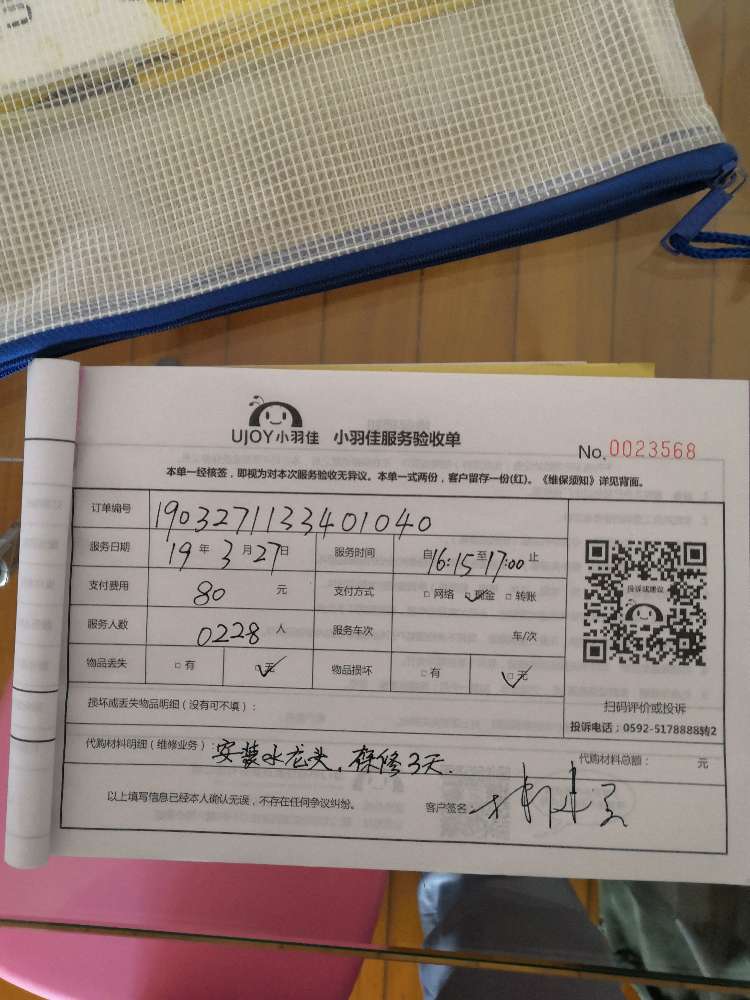 UJOY小羽佳 小羽佳服务验收单
No.0023568
本单一经核签，即视为对本次服务验收无异议。本单一式两份，客户留存一份(红)。《维保须知》详见背面。
订单编号 1903271133401040
服务日期 19年3月27日 服务时间 自16:15至17:00止
支付费用 80元 支付方式 □网络 □现金 □转账
服务人数 0228人 服务车次 车/次
物品丢失 □有 □无 物品损坏 □有 □无
投诉或建议
扫码评价或投诉
投诉电话：0592-5178888转2
损坏或丢失物品明细（没有可不填）：
代购材料明细（维修业务）：安装水龙头，保修3天. 代购材料总额： 元
以上填写信息已经本人确认无误，不存在任何争议纠纷。 客户签名：